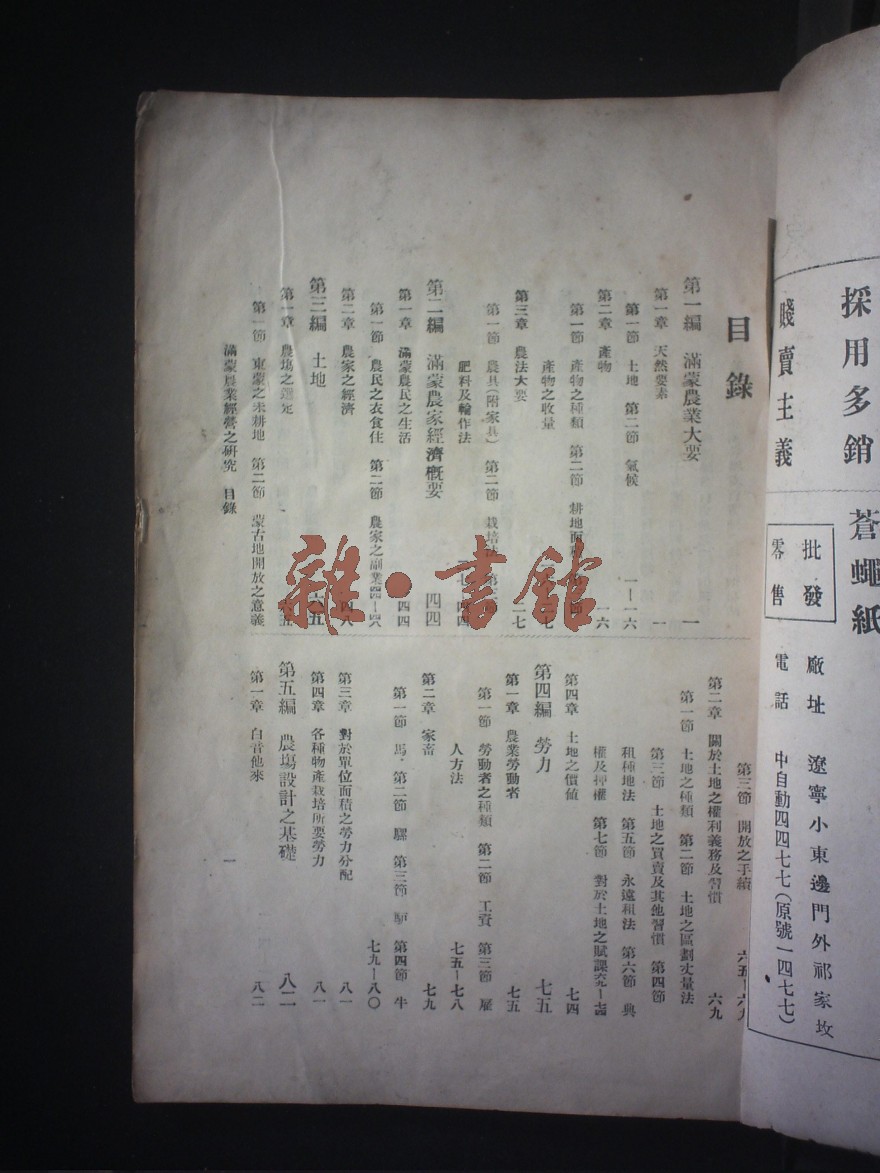 採用多銷
蒼蠅紙
賤賣主義
批發
零售
廠址 遼寧小東邊門外祁家坟
電話 中自動四四七七(原號一四七七)
目錄
第一編 滿蒙農業大要 一
第一章 天然要素 一
第一節 土地 第二節 氣候 一—一六
第二章 產物 一六
第一節 產物之種類 第二節 耕地面
產物之收量
第三章 農法大要 二七
第一節 農具(附家具) 第二節 栽培法
肥料及輪作法 四四
第二編 滿蒙農家經濟概要 四四
第一章 滿蒙農民之生活 四四
第一節 農民之衣食住 第二節 農家之副業 四四—四八
第二章 農家之經濟 四八
第三編 土地 六五
第一章 農場之選定 六五
第一節 東蒙之未耕地 第二節 蒙古地開放之意義
第三節 開放之手續 六五—六九
第二章 關於土地之權利義務及習慣 六九
第一節 土地之種類 第二節 土地之區劃丈量法
第三節 土地之買賣及其他習慣 第四節
租種地法 第五節 永遠租法 第六節 典
權及押權 第七節 對於土地之賦課
第四章 土地之價値 七四
第四編 勞力 七五
第一章 農業勞動者 七五
第一節 勞動者之種類 第二節 工資 第三節 雇
人方法 七五—七八
第二章 家畜 七九
第一節 馬 第二節 騾 第三節 驢 第四節 牛
七九—八〇
第三章 對於單位面積之勞力分配 八一
第四章 各種物產栽培所要勞力 八一
第五編 農場設計之基礎 八二
第一章 白音他來 八二
滿蒙農業經營之研究 目錄
一
雜·書館